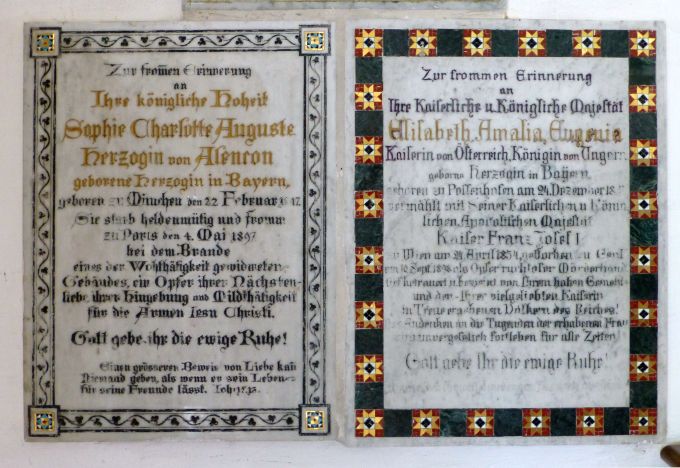 Zur from̄en Erinnerung
an
Ihre königliche Hoheit
Sophie Charlotte Auguste
Herzogin von Alencon
geborene Herzogin in Bayern,
geboren zu München den 22 Februar 1847
Sie starb heldenmütig und from̄
zu Paris den 4. Mai 1897
bei dem Brande
eines der Wohlthätigkeit gewidmeten
Gebäudes, ein Opfer ihrer Nächsten-
liebe ihrer Hingebung und Mildthätigkeit
für die Armen Jesu Christi.
Gott gebe ihr die ewige Ruhe!
Einen grösseren Beweis von Liebe kan̄
Niemand geben, als wenn er sein Leben
für seine Freunde lässt. Joh.
Zur frommen Erinnerung
an
Ihre Kaiserliche u. Königliche Majestät
Elisabeth, Amalia, Eugenie
Kaiserin von Österreich, Königin von Ungarn
geborne Herzogin in Bayern
geboren zu Possenhofen am 24. Dezember
vermählt mit Seiner Kaiserlichen u. König
lichen, Apostolischen Majestät
Kaiser Franz Josef I
zu Wien am 24 April 1854, gestorben zu Genf
am 10 Sept. 1898 als Opfer ruchloser Mörderhand
tief betrauert u. beweint von Ihrem hohen Gemahl
und der Ihrer vielgeliebten Kaiserin
in Treue ergebenen Völkern des Reiches!
Das Andenken an die Tugenden der erhabenen Frau
wird unvergesslich fortleben für alle Zeiten!
Gott gebe Ihr die ewige Ruhe!